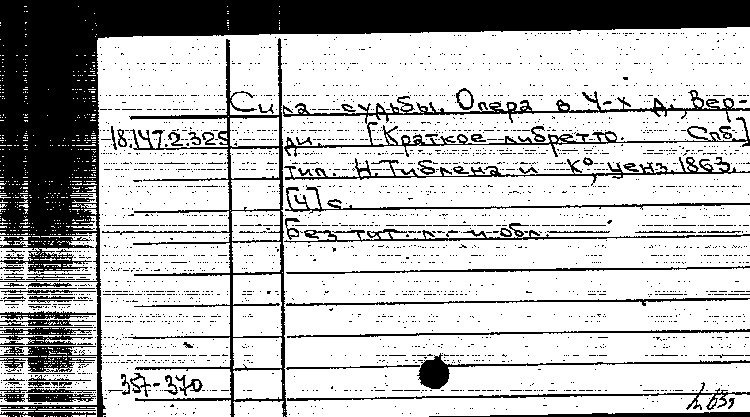 Сила судьбы. Опера в 4-х д., Вер-
18.147.2.325 ди. [Краткое либретто. Спб.]
тип. Н. Тиблена и К°, ценз. 1863.
[4] с.
Без тит. л. и обл.
357-370